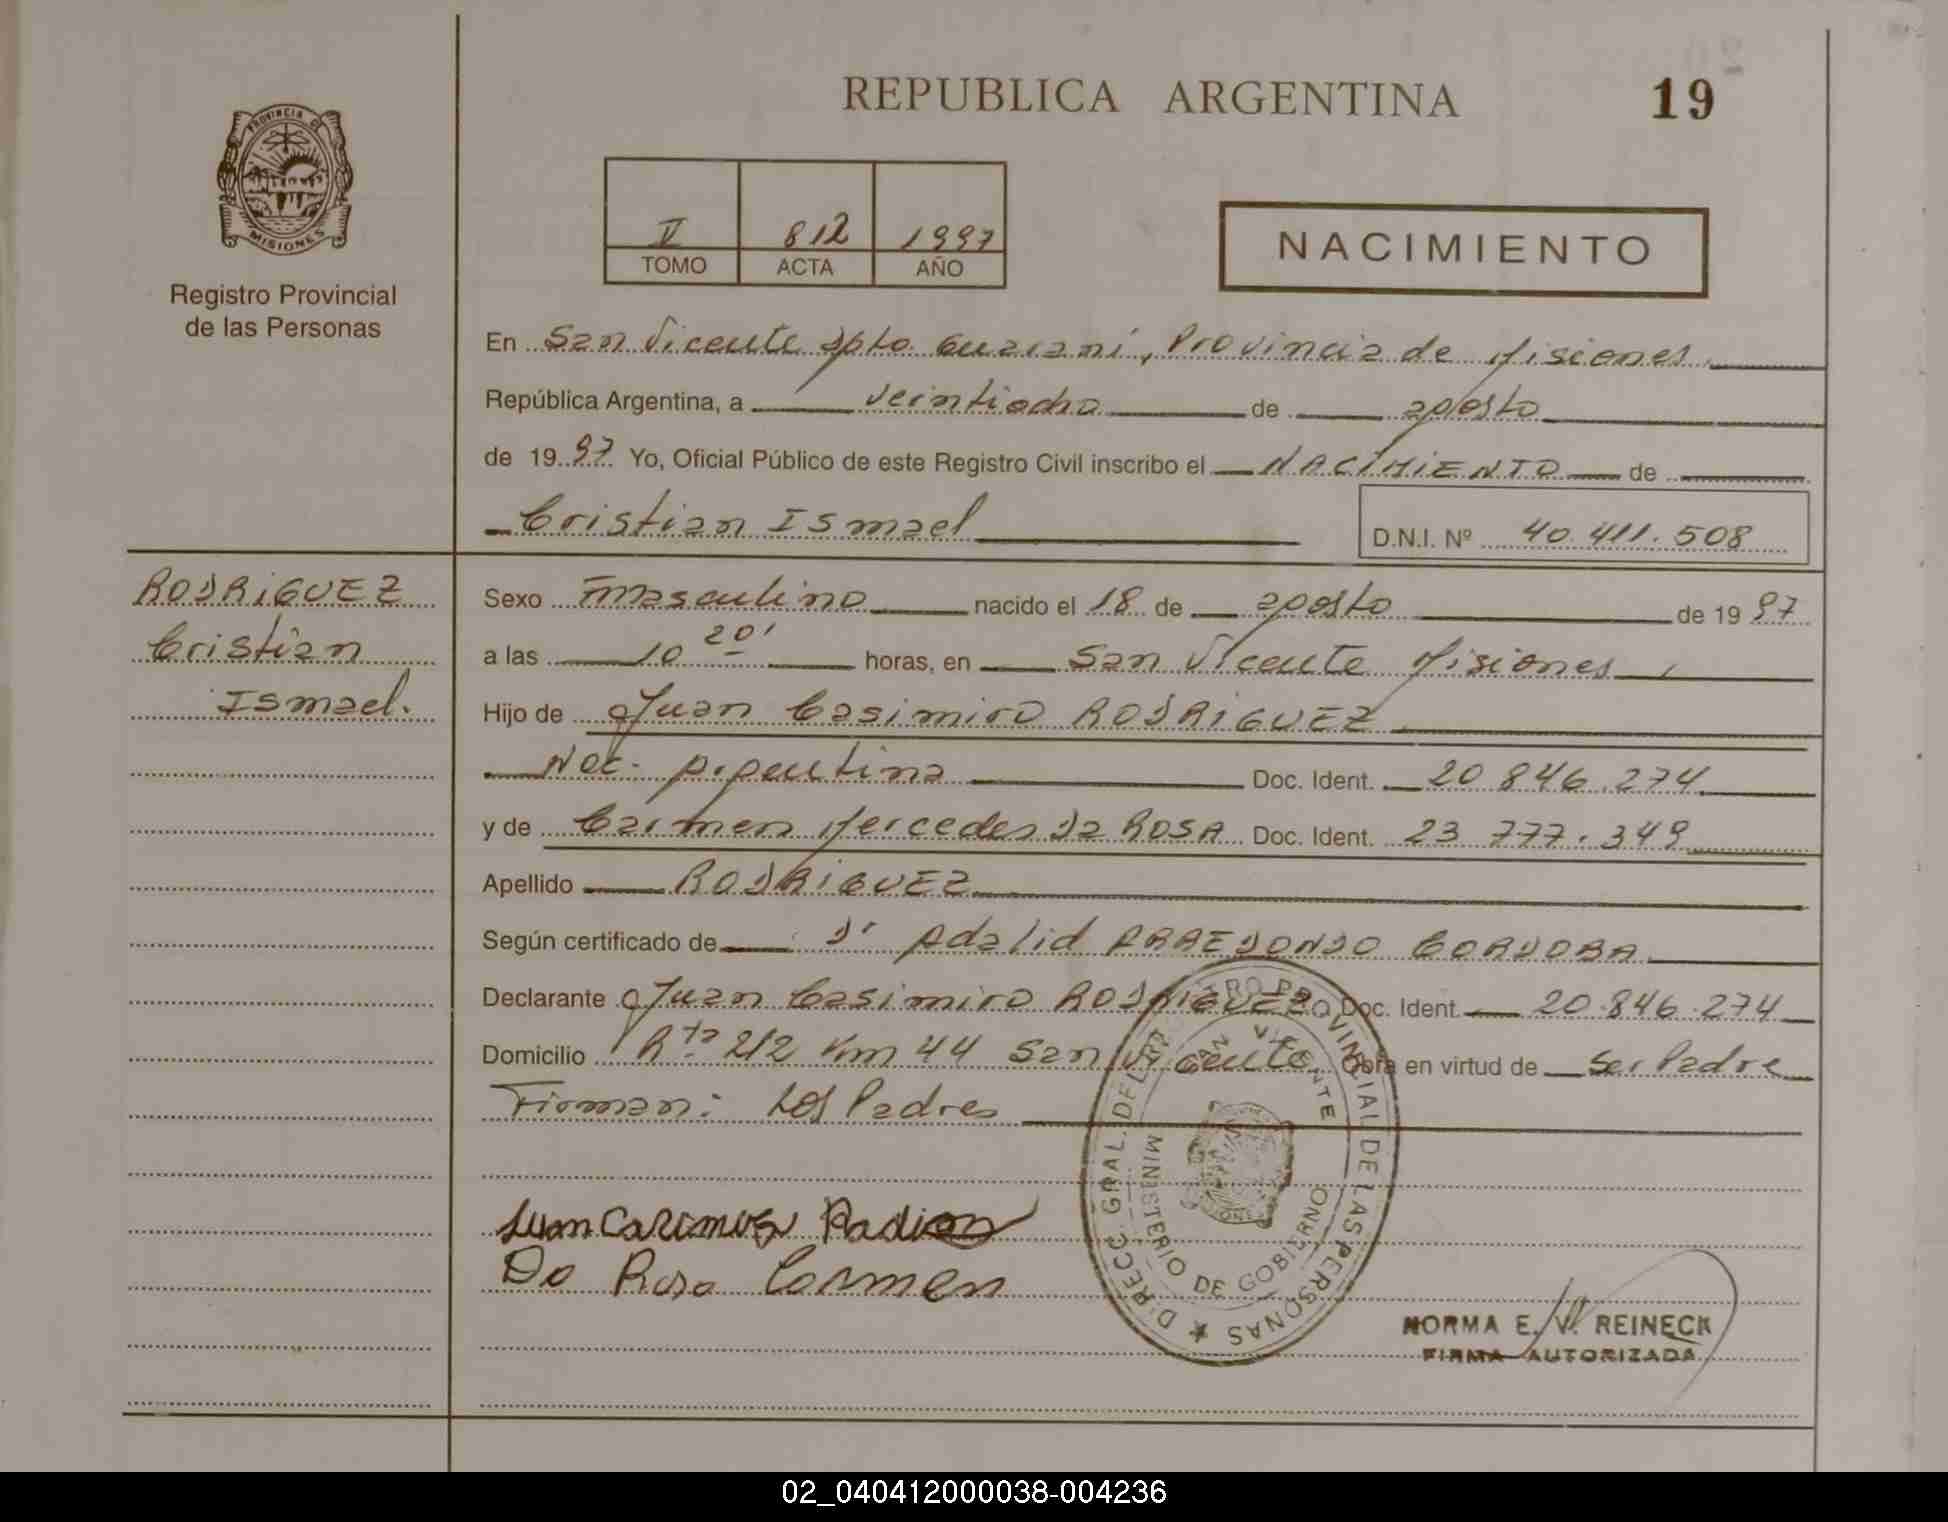 REPUBLICA ARGENTINA
19
PROVINCIA DE
MISIONES
Registro Provincial
de las Personas
V 812 1997
TOMO ACTA AÑO
NACIMIENTO
En San Vicente Dpto. Guaraní, Provincia de Misiones
República Argentina, a veintiocho de agosto
de 1997 Yo, Oficial Público de este Registro Civil inscribo el NACIMIENTO de
Cristian Ismael
D.N.I. Nº 40.411.508
RODRIGUEZ
Cristian
Ismael.
Sexo masculino nacido el 18 de agosto de 1997
a las 10 20' horas, en San Vicente Misiones
Hijo de Juan Casimiro RODRIGUEZ
Nac. Argentina Doc. Ident. 20.846.274
y de Carmen Mercedes Da ROSA Doc. Ident. 23.777.349
Apellido RODRIGUEZ
Según certificado de Dr Adalid ARREDONDO CORDOBA
Declarante Juan Casimiro RODRIGUEZ Doc. Ident. 20.846.274
Domicilio Rta 212 Km 44 San Vicente Obra en virtud de Ser Padre
Firman: Los Padres
Da Rosa Carmen
DIRECC. GRAL. DEL REGISTRO PROVINCIAL DE LAS PERSONAS
SAN VICENTE
MINISTERIO DE GOBIERNO
NORMA E. V. REINECK
FIRMA AUTORIZADA
02_040412000038-004236